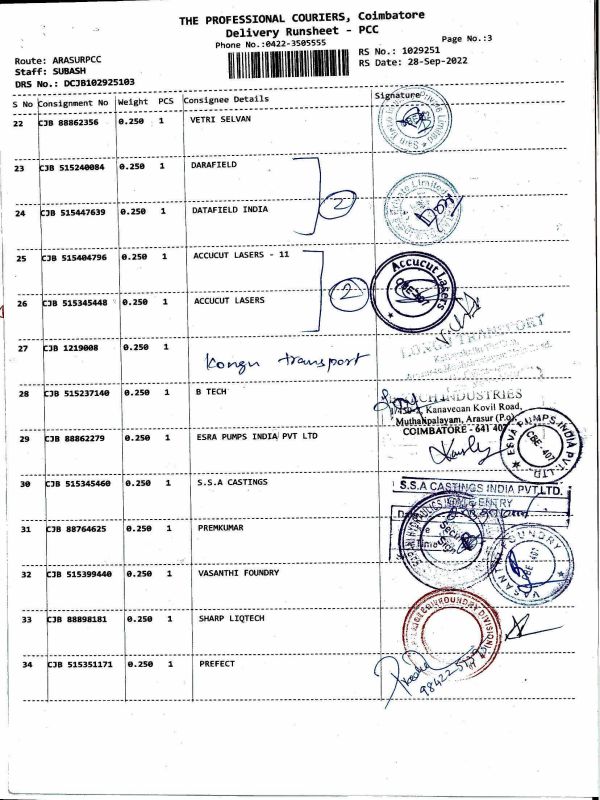 THE PROFESSIONAL COURIERS, Coimbatore
Delivery Runsheet - PCC
Phone No.:0422-3505555
Page No.:3
Route: ARASURPCC
RS No.: 1029251
Staff: SUBASH
RS Date: 28-Sep-2022
DRS No.: DCJB102925103
S No Consignment No Weight PCS Consignee Details Signature
22 CJB 88862356 0.250 1 VETRI SELVAN
23 CJB 515240084 0.250 1 DARAFIELD
2
24 CJB 515447639 0.250 1 DATAFIELD INDIA
Private Limited
25 CJB 515404796 0.250 1 ACCUCUT LASERS - 11
2
Accucut Lasers
CBE-407
26 CJB 515345448 0.250 1 ACCUCUT LASERS
27 CJB 1219008 0.250 1 Kongu transport
TRANSPORT
28 CJB 515237140 0.250 1 B TECH
INDUSTRIES
Kanaveoan Kovil Road,
Muthalipalayam, Arasur (P.o)
COIMBATORE - 641 407
29 CJB 88862279 0.250 1 ESRA PUMPS INDIA PVT LTD
ESVA PUMPS INDIA PVT. LTD
CBE - 407
30 CJB 515345460 0.250 1 S.S.A CASTINGS
S.S.A CASTINGS INDIA PVT.LTD.
ENTRY
31 CJB 88764625 0.250 1 PREMKUMAR
Security
Sign
32 CJB 515399440 0.250 1 VASANTHI FOUNDRY
VASANTHI FOUNDRY
CBE 407
33 CJB 88898181 0.250 1 SHARP LIQTECH
34 CJB 515351171 0.250 1 PREFECT